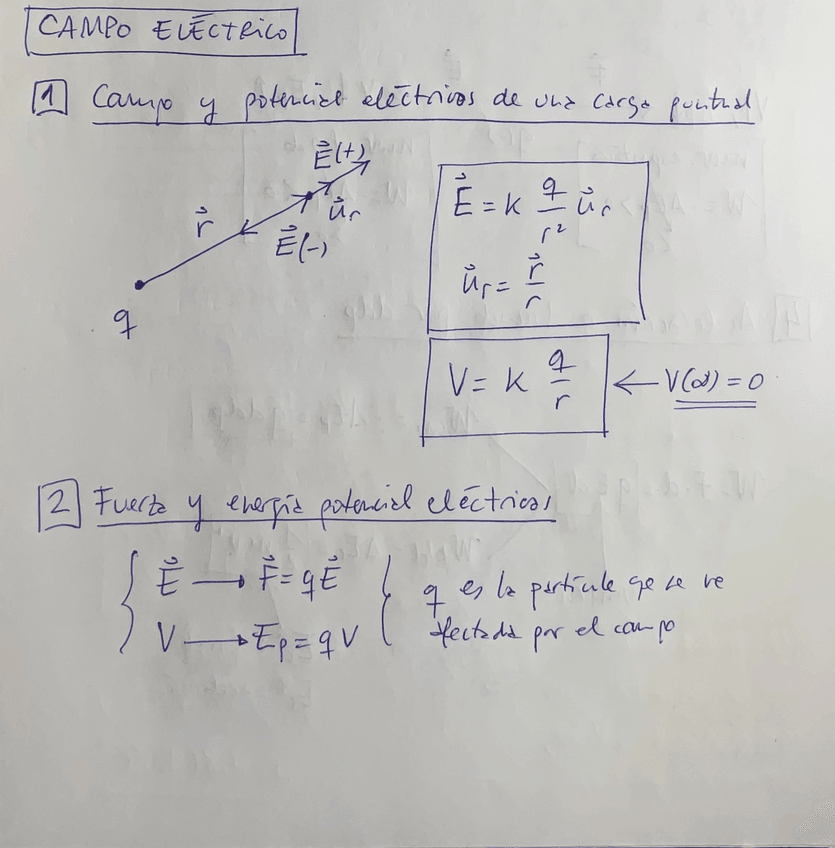 CAMPO ELÉCTRICO
1 Campo y potencial eléctricos de una carga puntual
E⃗(+)
u⃗r
r⃗
E⃗(-)
q
E⃗ = K q/r² u⃗r
u⃗r = r⃗/r
V = K q/r ← V(∞) = 0
2 Fuerza y energía potencial eléctricas
E⃗ → F⃗ = qE⃗
V → Ep = qV
q es la partícula qe se ve
afectada por el campo